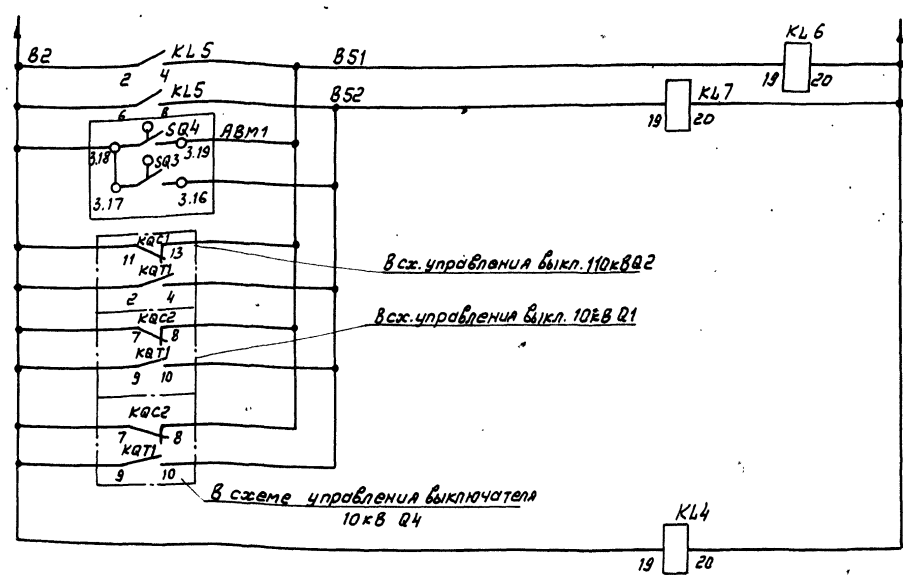 KL6
B2
KL5
B51
2 4
19 20
KL5
B52
KL7
6 8
19 20
SQ4
АВМ1
3.18
3.19
SQ3
3.17
3.16
KQC1
11 13
KQT1
В сх. управления выкл. 110кВ Q2
2 4
KQC2
В сх. управления выкл. 10кВ Q1
7 8
KQT1
9 10
KQC2
7 8
KQT1
9 10
В схеме управления выключателя
10кВ Q4
KL4
19 20